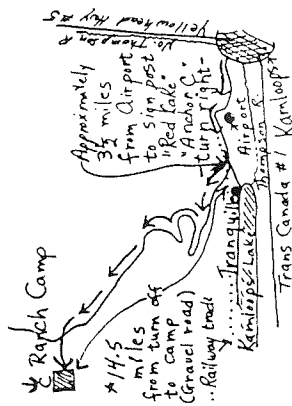 Yellowhead Hwy #5
No. Thompson R
Approximately
3½ miles
from Airport
to sign post
"Red Lake"
"Anchor C"
turn right -
Airport
Thompson R.
Kamloops
Tranquille
Kamloops Lake
Trans Canada #1
C Ranch Camp
*14.5
miles
from turn off
to camp
(Gravel road)
..Railway track